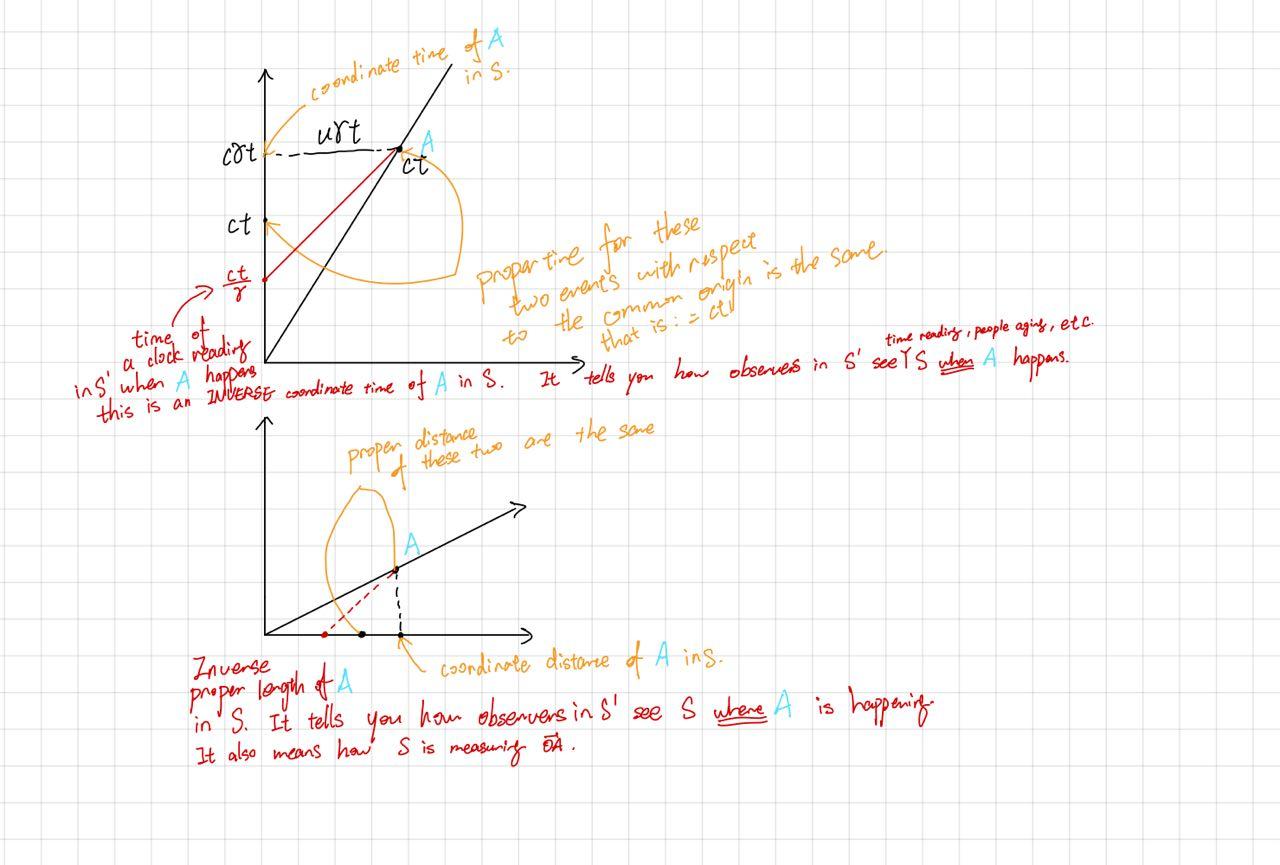 coordinate time of A
in S.
cγt
uγt
A
ct
ct
ct/γ
proper time for these
two events with respect
to the common origin is the same.
that is : = ct
time of
a clock reading
in S' when A happens
this is an INVERSE coordinate time of A in S. It tells you how observers in S' see S when A happens.
time reading, people aging, etc.
proper distance
of these two are the same
A
coordinate distance of A in S.
Inverse
proper length of A
in S. It tells you how observers in S' see S where A is happening.
It also means how S is measuring OA.